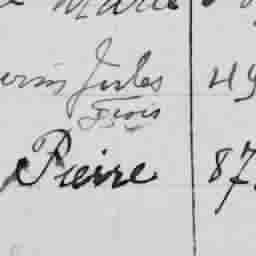 Marie
Jules 49
Frois
Pierre 87